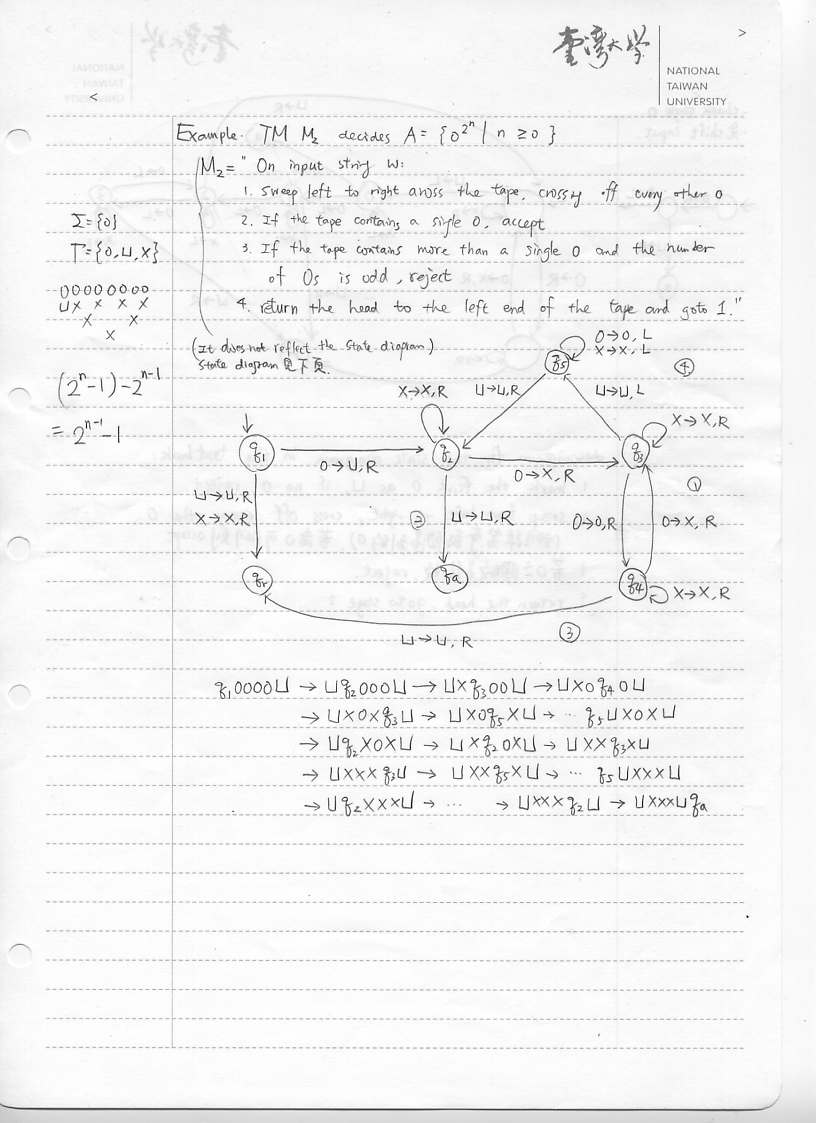 臺灣大學
NATIONAL
TAIWAN
UNIVERSITY
Example. TM M₂ decides A = {0^{2^n} | n ≥ 0}
M₂ = " On input string w:
1. sweep left to right aross the tape, crossy off every other 0
2. If the tape contains a sigle 0, accept
3. If the tape contains more than a single 0 and the number
of 0s is odd, reject
4. return the head to the left end of the tape and goto 1."
(It does not reflect the state diagram)
state diagram 見下頁.
Σ = {0}
Γ = {0, ⊔, x}
00000000
⊔x x x x
x x
x
(2^n - 1) - 2^{n-1}
= 2^{n-1} - 1
0→0, L
x→x, L
q5
④
x→x, R
⊔→⊔, R
⊔→⊔, L
x→x, R
q1
0→⊔, R
q2
0→x, R
q3
①
⊔→⊔, R
x→x, R
②
⊔→⊔, R
0→0, R
0→x, R
qr
qa
q4
x→x, R
⊔→⊔, R
③
q₁0000⊔ → ⊔q₂000⊔ → ⊔xq₃00⊔ → ⊔x0q₄0⊔
→ ⊔x0xq₃⊔ → ⊔x0q₅x⊔ → ... q₅⊔x0x⊔
→ ⊔q₂x0x⊔ → ⊔xq₂0x⊔ → ⊔xxq₃x⊔
→ ⊔xxxq₃⊔ → ⊔xxq₅x⊔ → ... q₅⊔xxx⊔
→ ⊔q₂xxx⊔ → ... → ⊔xxxq₂⊔ → ⊔xxx⊔qa